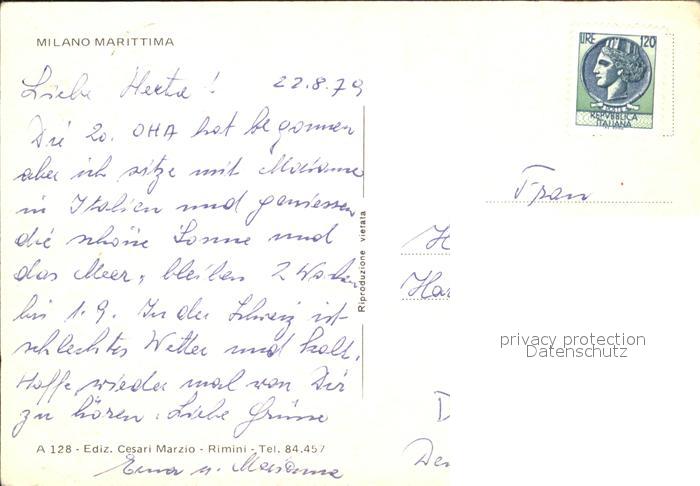 MILANO MARITTIMA
LIRE 120
REPVBBLICA
ITALIANA
Liebe Herta! 22.8.79
Die 20. OHA hat begonnen
aber ich sitze mit Marianne
in Italien und geniessen
die schöne Sonne und
das Meer, bleiben 2 Wochen
bis 1.9. In der Schweiz ist
schlechtes Wetter und kalt.
Hoffe wieder mal von Dir
zu hören. Liebe Grüsse
u. Marianne
Riproduzione vietata
A 128 - Ediz. Cesari Marzio - Rimini - Tel. 84.457
Frau
H
Ha
D
privacy protection
Datenschutz